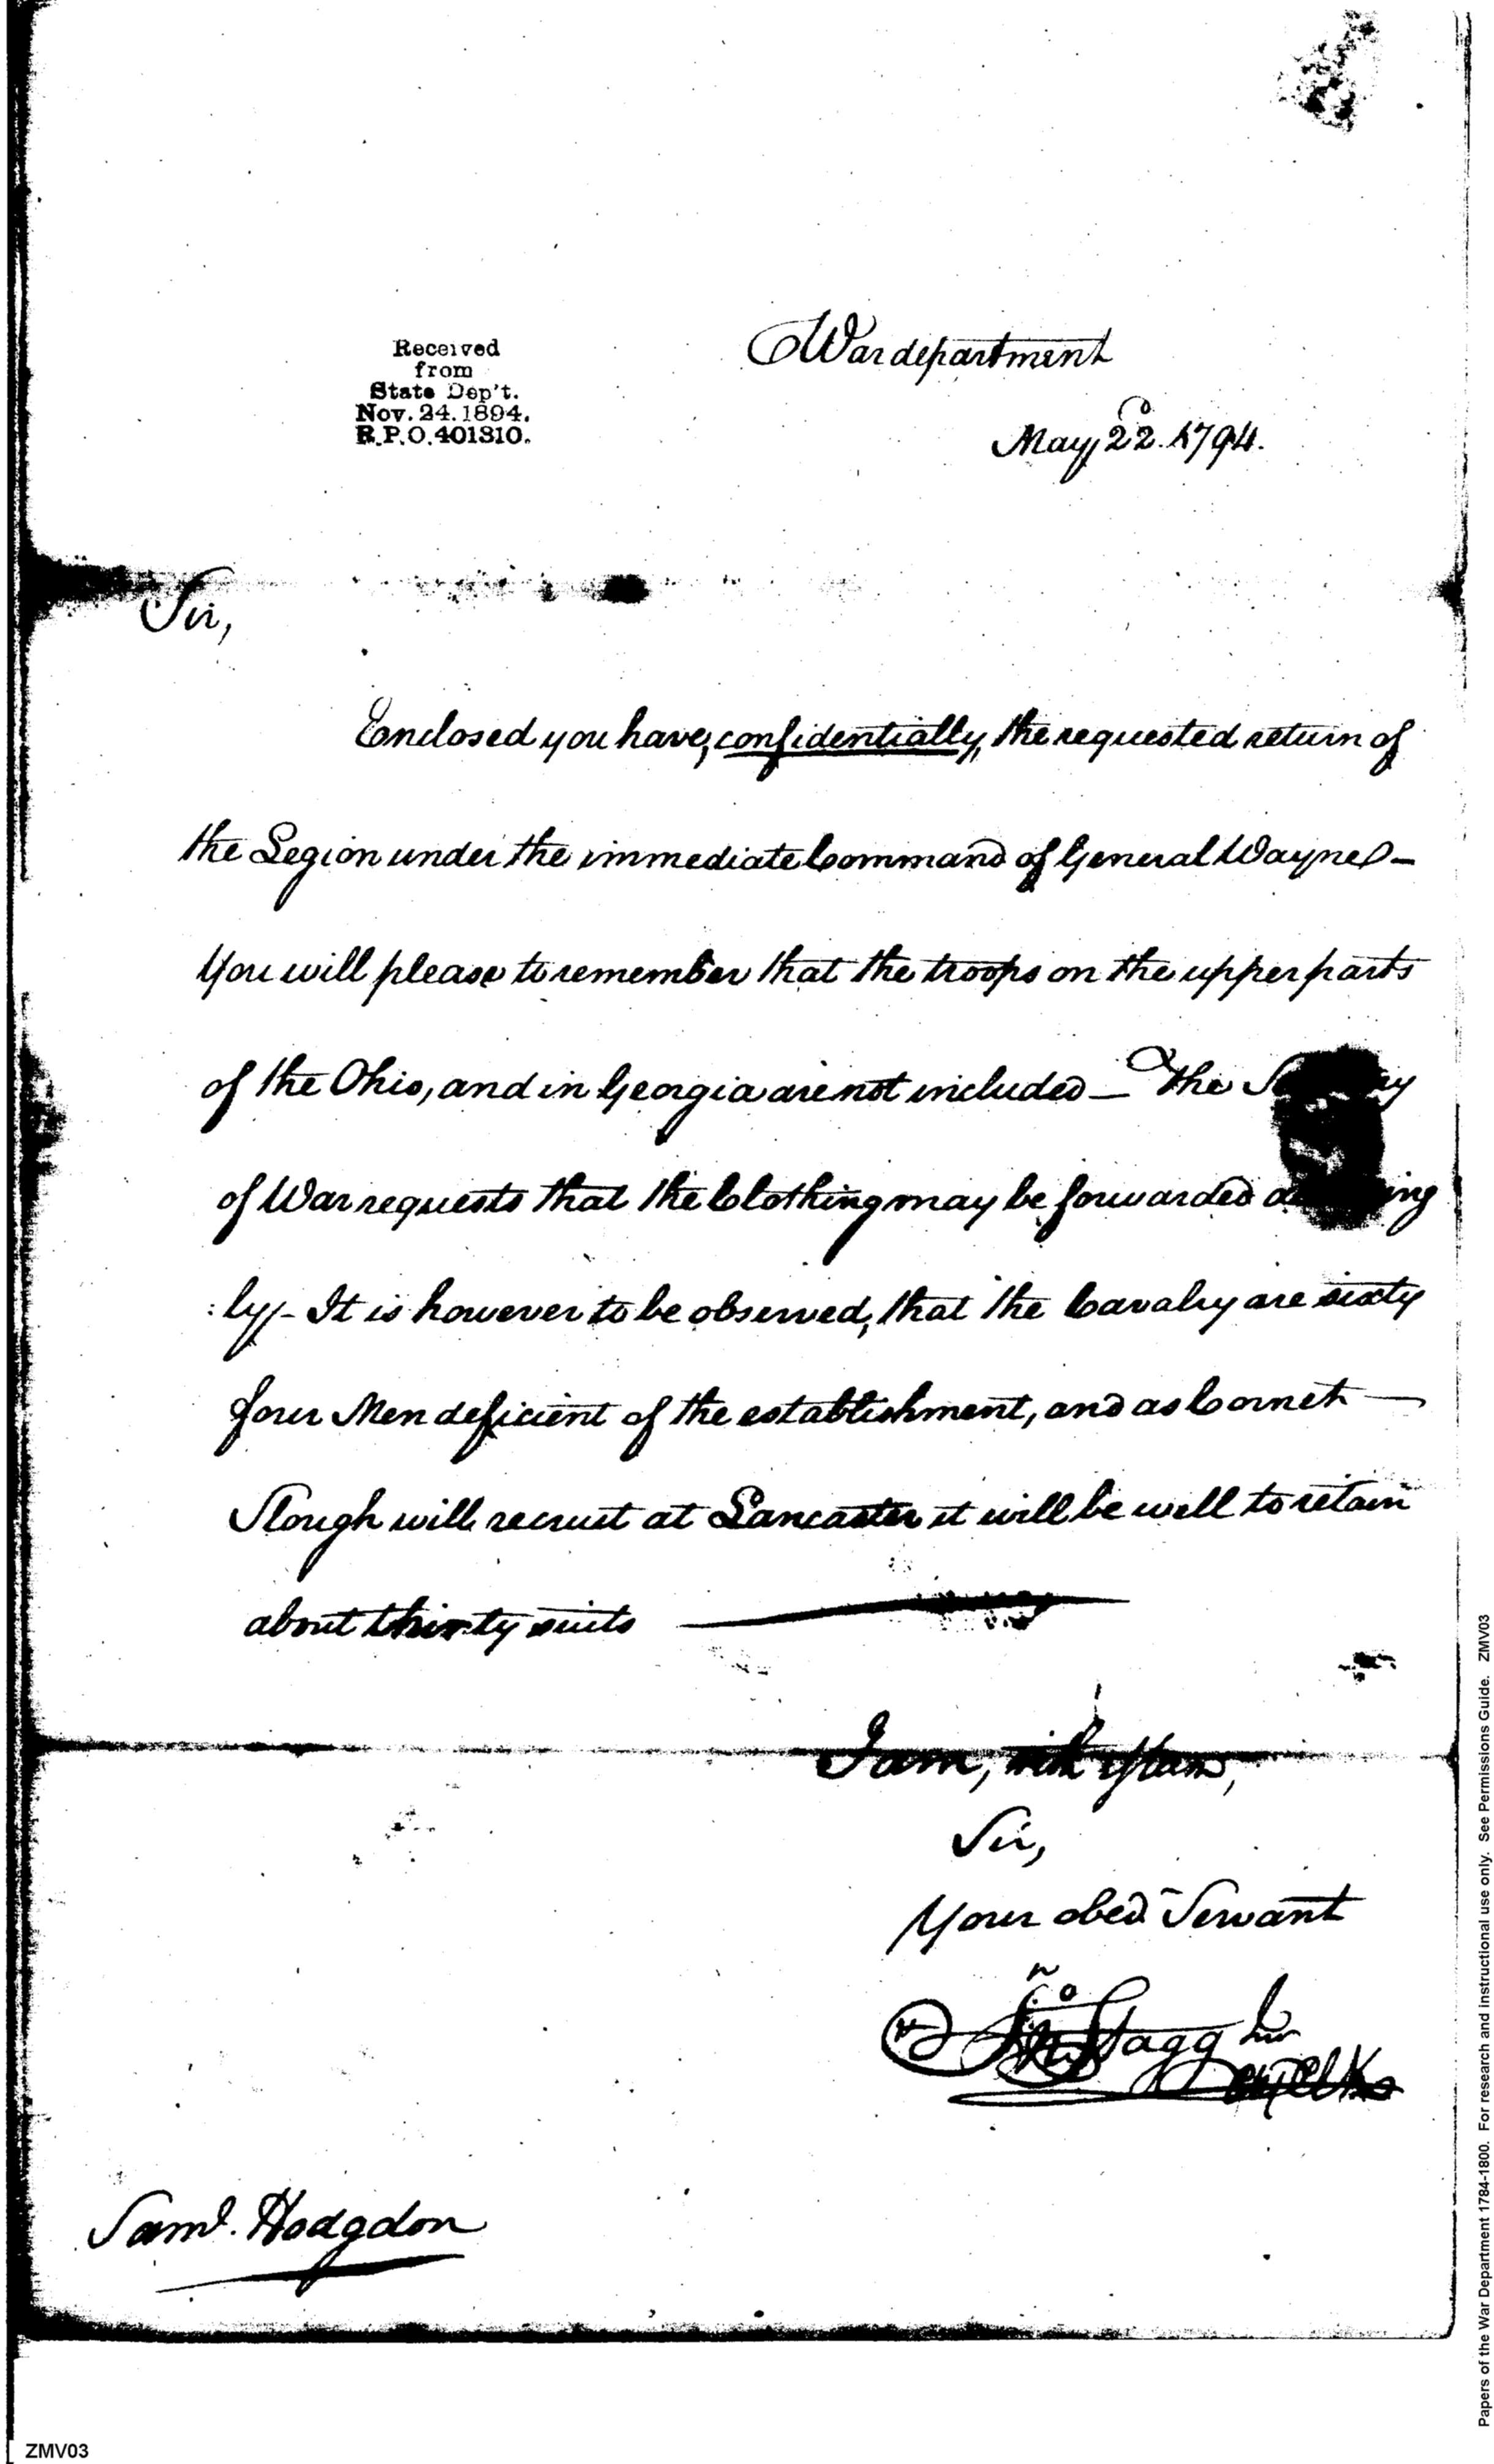 Received
from
State Dep't.
Nov. 24. 1894.
R.P.O. 401310.
War department
May 22. 1794.
Sir,
Enclosed you have, confidentially, the requested return of
the Legion under the immediate Command of General Wayne –
You will please to remember that the troops on the upper parts
of the Ohio, and in Georgia are not included – The
of War requests that the Clothing may be forwarded
:ly – It is however to be observed, that the Cavalry are sixty
four Men deficient of the establishment, and as Cornet –
Slough will recruit at Lancaster it will be well to retain
about thirty suits
I am, with esteem,
Sir,
Your obed. Servant
Jno Stagg Jur
Saml. Hodgdon
Papers of the War Department 1784-1800. For research and instructional use only. See Permissions Guide. ZMV03
ZMV03